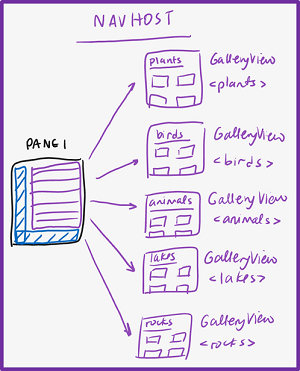 NAVHOST
plants
GalleryView
<plants>
birds
GalleryView
<birds>
PANE 1
animals
Gallery View
<animals>
lakes
GalleryView
<lakes>
rocks
GalleryView
<rocks>